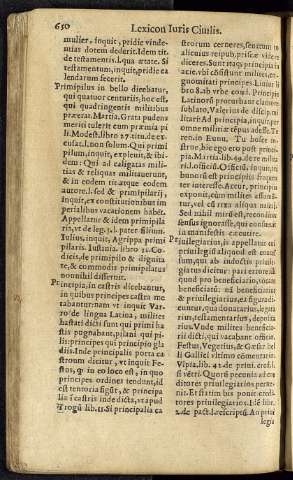 650 Lexicon Iuris Ciuilis.
mulier, inquit, pridie vinde-
mias dotem dederit. Idem tit.
de testamentis. l. qua ætate. Si
testamentum, inquit, pridie ca
lendarum fecerit.
Primipilus in bello dicebatur,
qui quatuor centuriis, hoc est,
qui quadringentis militibus
præerat. Martia. Grata pudens
meriti tulerit cum præmia pi
li. Modest. libro 27. titu. de ex-
cusat. l. non solum. Qui primi
pilum, inquit, expleuit, & ibi-
dem: Qui ad caligatas mili-
tias & reliquas militauerunt,
& in eodem titæque eodem
autore. l. sed & primipilarij,
inquit, ex constitutionibus im
perialibus vacationem habēt.
Appellatur & idem primipila
ris, vt de leg. 3. l. pater filium.
Iulius, inquit, Agrippa primi
pilaris. Iustinia. libro 12. Co-
dicis, de primipilo & dignita
te, & commodis primipilatus
nonnihil differuit.
Principia, in castris dicebantur,
in quibus principes castra me
rabantur: nam vt inquit Var-
ro de lingua Latina, milites
hastati dicti sunt qui primi ha
stis pugnabant, pilani qui pi-
lis: principes qui principio gla
diis. Inde principalis porta ca
strorum dicitur, vt inquit Fe-
stus, ꝙ in eo loco est, in quo
principes ordines tendunt, id
est tentoria figūt, & principa
lia castris inde dicta, vt apud
Trogū lib. 11. Si principalia ca
strorum cerneres, senatum te
alicuius reipub. priscæ videre
diceres. Sunt itaq; principia lo
ca, vbi cōsistūt milites,
 Liuius li
bro 8. ab vrbe cond. Principia
Latinorū procurbant clamore
sublato, Valerius de discipli. mi
litari: Ad principia, inquit, pro
 omne militiæ tēpus adesse. Te
ren. in Eunu. Tu hosce in-
strue, hic ego ero post princi-
pia. Martia. lib. 49. de re milita
ri. l. officiū. Officium, inquit,
numeris, in principiis frequen
ter interesse. Accur. principia
exponit, cùm milites assumun
tur, quasi non sit
Sed nihil mirū est, reconditos
sensus ignorasse, qui commu-
nia manifestis cæcutire.
Priuilegiarius, is appellatur cui
priuilegiū aliquod est concef-
sum, qui ab indoctis priui-
legiatus dicitur: pari errore il
quod pro beneficiario bene-
ficiatus, nam vt beneficiarius
& priuilegiarius, ea figura di-
cuntur, qua donatarius, lega-
tarius, testamentarius, deposita
rius. Vnde milites beneficia-
rii dicti, qui vacabant officio.
Festus, Vegetius, & Cæsar bel
li Gallici vltimo cōmentario.
Vlpia. lib. 42. de priui. credi.
si vētri. Quorū pecunia ad cre
ditores priuilegiarios perue-
nit. Et statim bis ponit credi-
tores priuilegiarios. Idē libr.
2. de pact. l. rescriptū. An priui
legiū